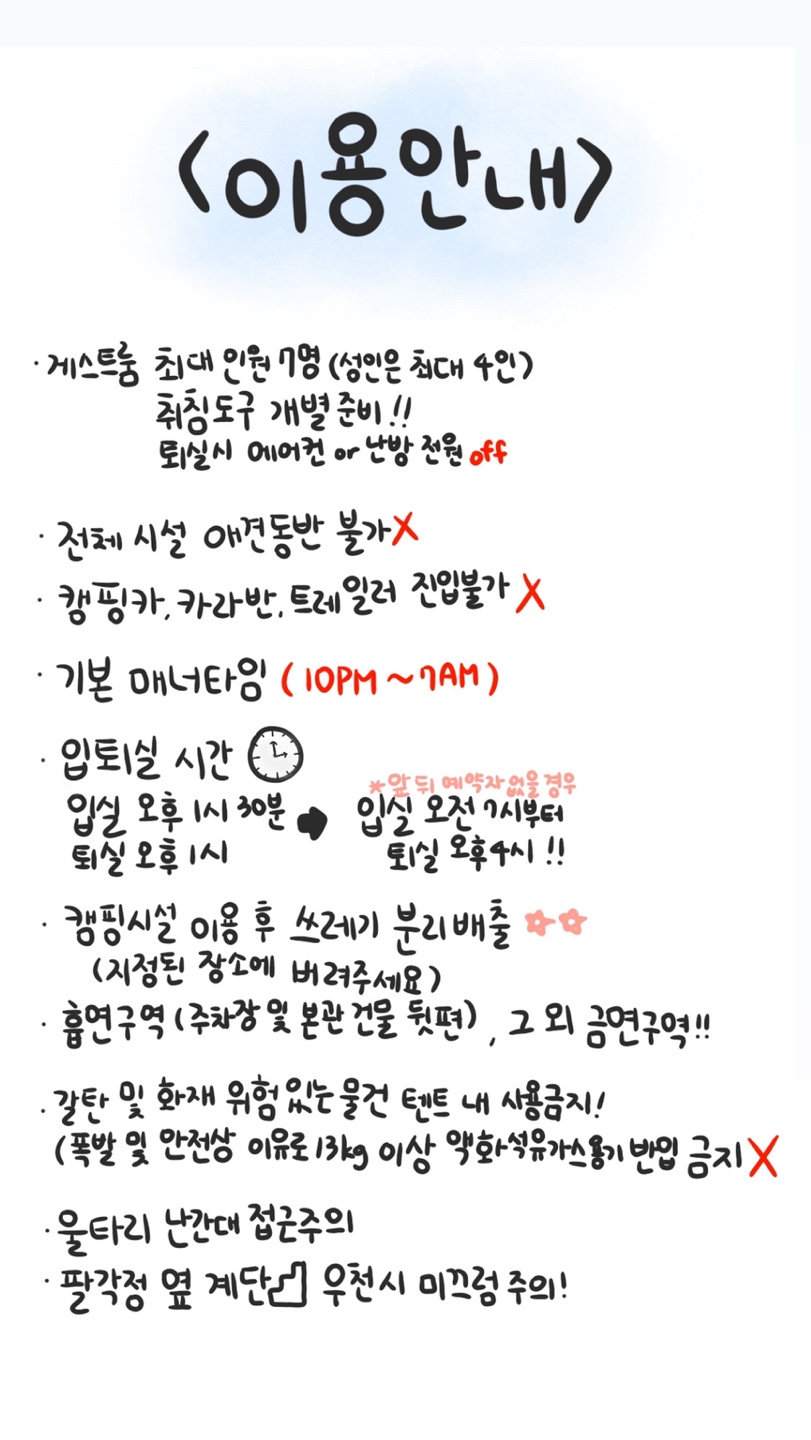 <이용안내>
· 게스트룸 최대 인원 7명 (성인은 최대 4인)
취침도구 개별 준비!!
퇴실시 에어컨 or 난방 전원 off
· 전체 시설 애견동반 불가X
· 캠핑카, 카라반, 트레일러 진입불가 X
· 기본 매너타임 (10PM ~ 7AM)
· 입퇴실 시간
*앞 뒤 예약자 없을 경우
입실 오후 1시 30분 ➡ 입실 오전 7시부터
퇴실 오후 1시 퇴실 오후 4시 !!
· 캠핑시설 이용 후 쓰레기 분리배출 ☆☆
(지정된 장소에 버려주세요)
· 흡연구역 (주차장 및 본관 건물 뒷편), 그 외 금연구역!!
· 갈탄 및 화재 위험있는 물건 텐트 내 사용금지!
(폭발 및 안전상 이유로 13kg 이상 액화석유가스용기 반입 금지 X
· 울타리 난간대 접근주의
· 팔각정 옆 계단 우천시 미끄럼 주의!